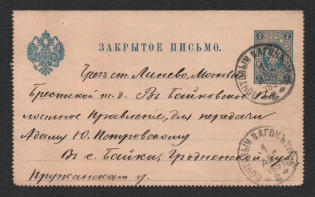 ЗАКРЫТОЕ ПИСЬМО.
7
Чрезъ ст. Линево, Москов
Брестской ж.д. Въ Байковское
волостное Правленіе, для передачи
Адаму Ю. Петровскому
Въ с. Байки, Гродненской губ
Пружанскаго у.
ПОЧТОВЫЙ ВАГОНЪ
ПОЧТОВЫЙ ВАГОНЪ